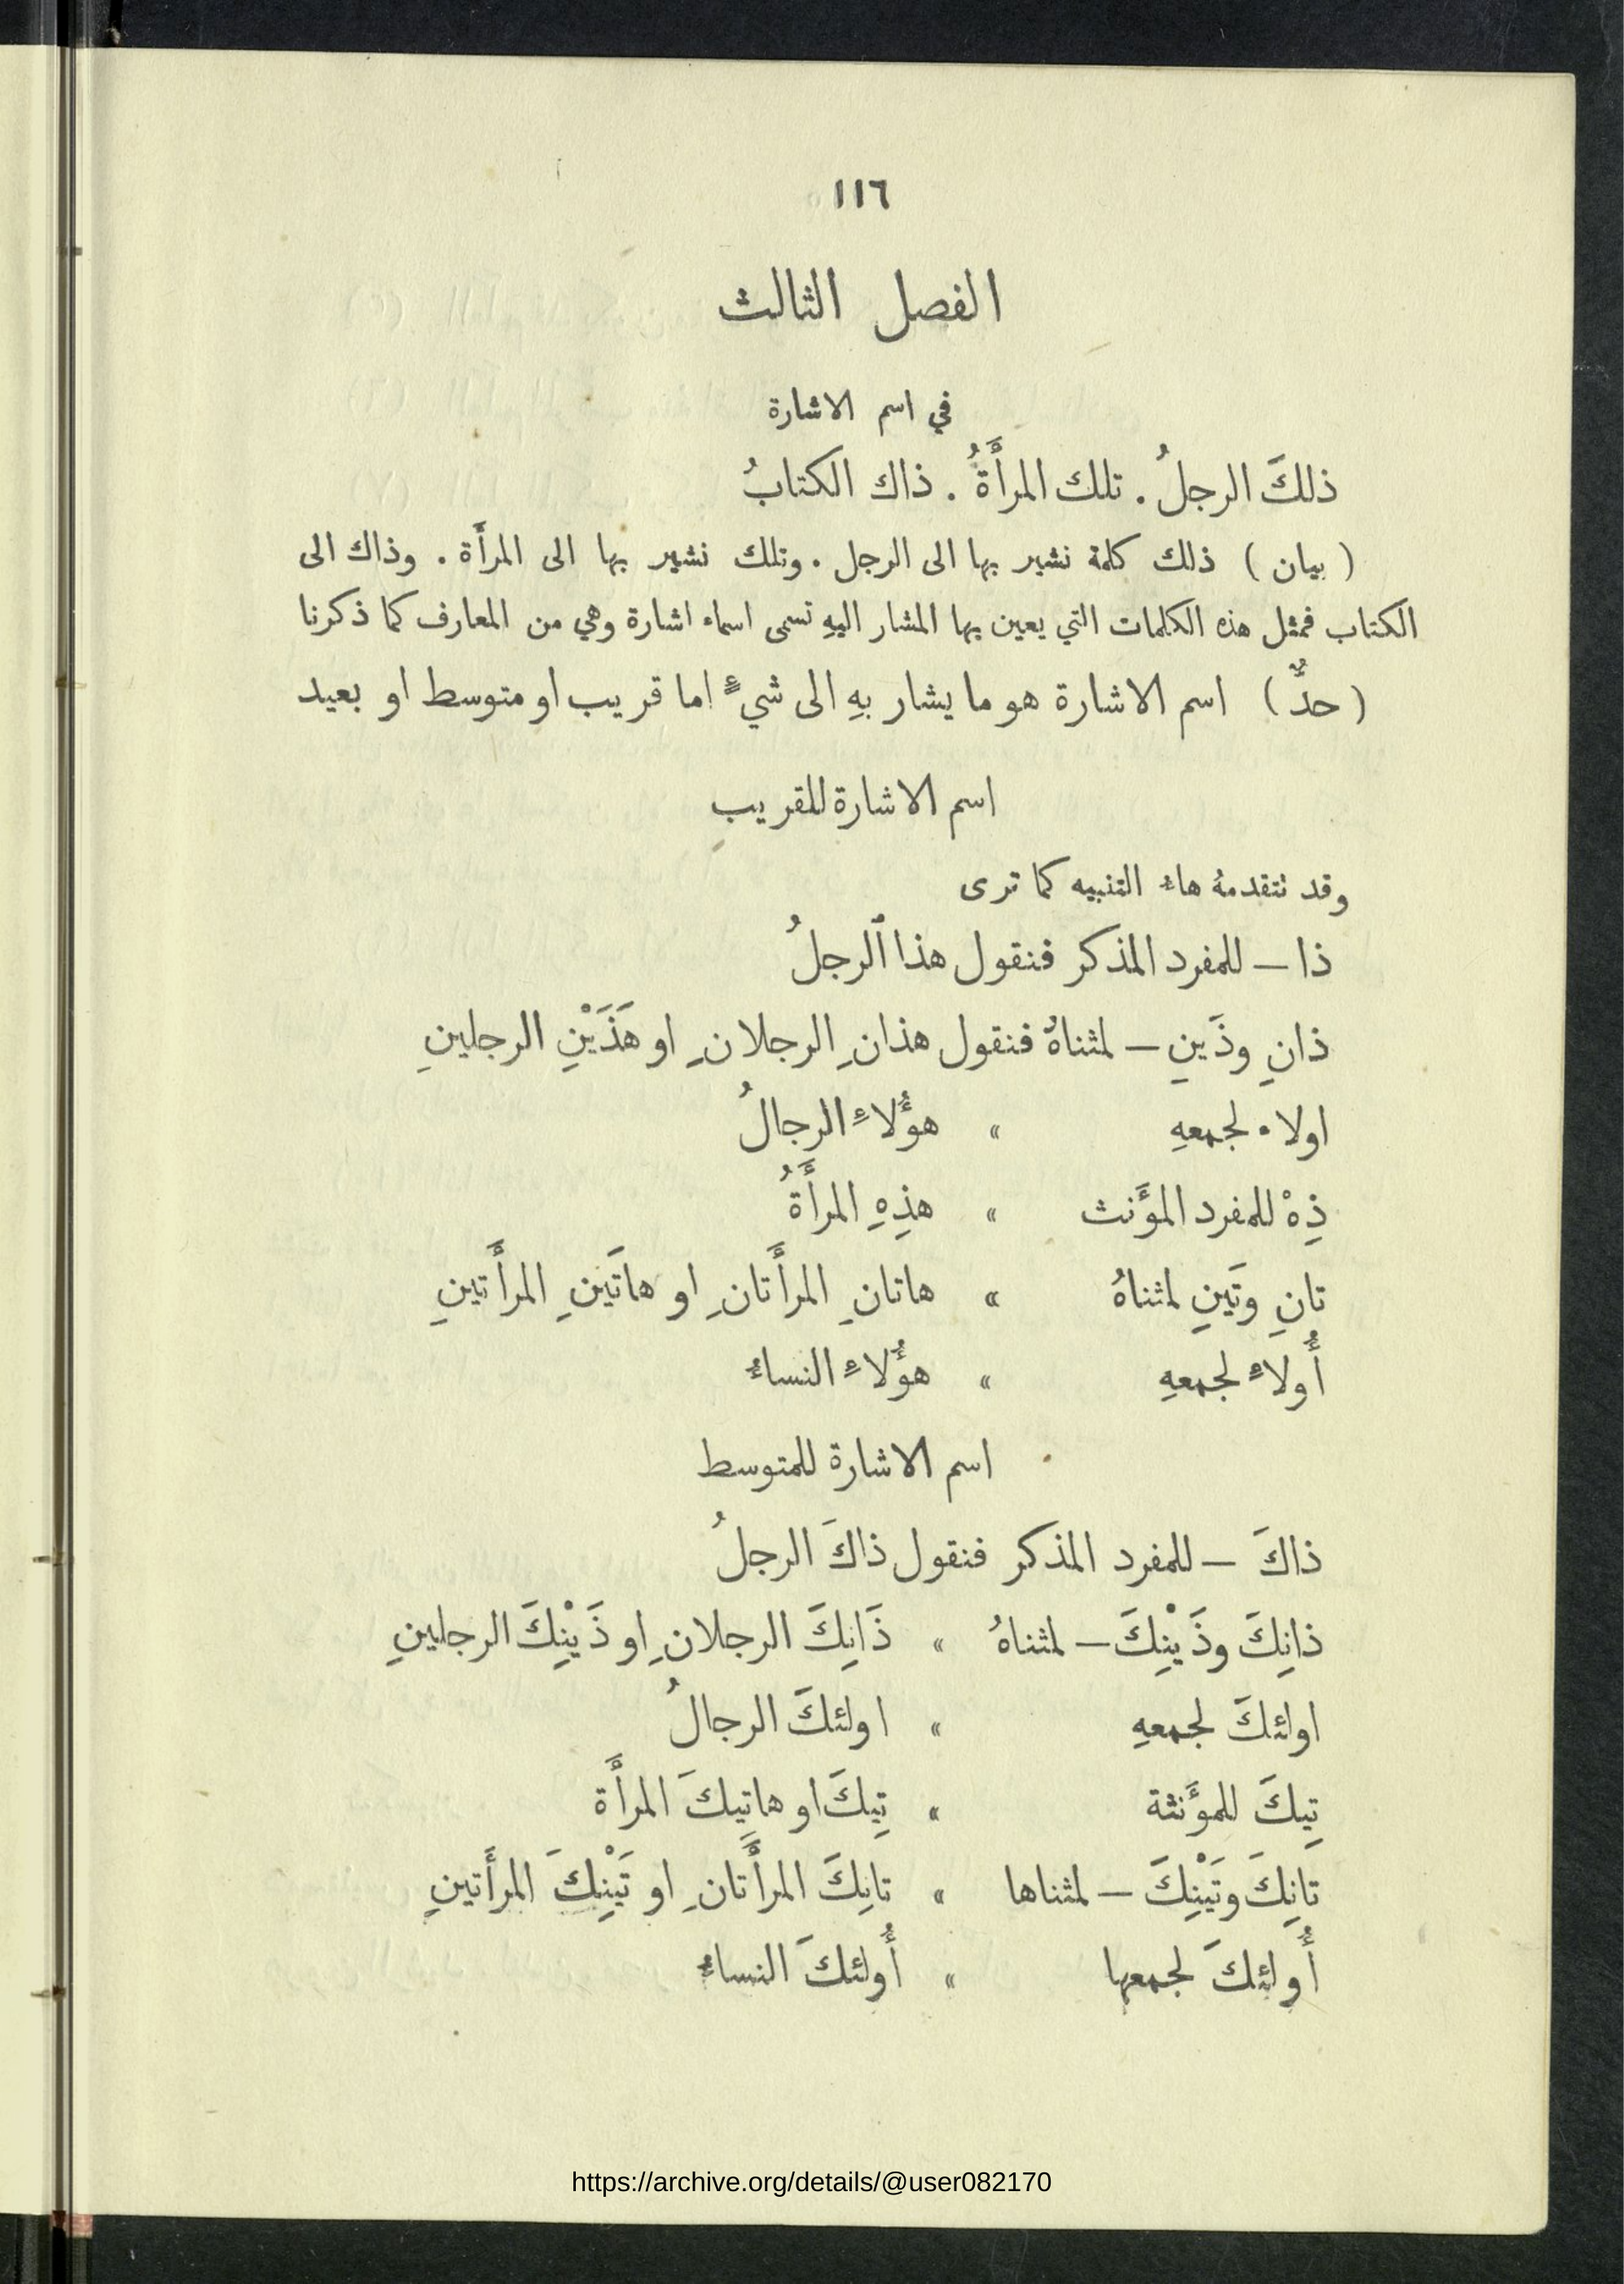 ١١٦
الفصل الثالث
في اسم الاشارة
ذلكَ الرجلُ . تلك المرأَةُ . ذاك الكتابُ
( بيان ) ذلك كلمة نشير بها الى الرجل . وتلك نشير بها الى المرأَة . وذاك الى
الكتاب فمثل هذه الكلمات التي يعين بها المشار اليهِ تسمى اسماء اشارة وهي من المعارف كما ذكرنا
( حدٌّ ) اسم الاشارة هو ما يشار بهِ الى شيءٍ اما قريب او متوسط او بعيد
اسم الاشارة للقريبِ
وقد تتقدمهُ هاءُ التنبيه كما ترى
ذا — للمفرد المذكر فنقول هذا ٱلرجلُ
ذانِ وذَينِ — لمثناهُ فنقول هذانِ الرجلانِ او هَذَيْنِ الرجلينِ
اولاء لجمعهِ » هؤُلاءِ الرجالُ
ذِهْ للمفرد المؤَنث » هذِهِ المرأَةُ
تانِ وتَينِ لمثناهُ » هاتانِ المرأَتانِ او هاتَينِ المرأَتينِ
أُولاءِ لجمعهِ » هؤُلاءِ النساءُ
اسم الاشارة للمتوسط
ذاكَ — للمفرد المذكر فنقول ذاكَ الرجلُ
ذانِكَ وذَيْنِكَ — لمثناهُ » ذَانِكَ الرجلانِ او ذَيْنِكَ الرجلينِ
اولئكَ لجمعهِ » اولئكَ الرجالُ
تِيكَ للمؤَنثة » تِيكَ او هاتِيكَ المرأَة
تانِكَ وتَيْنِكَ — لمثناها » تانِكَ المرأَتانِ او تَيْنِكَ المرأَتينِ
أُولئكَ لجمعها » أُولئكَ النساءُ
https://archive.org/details/@user082170